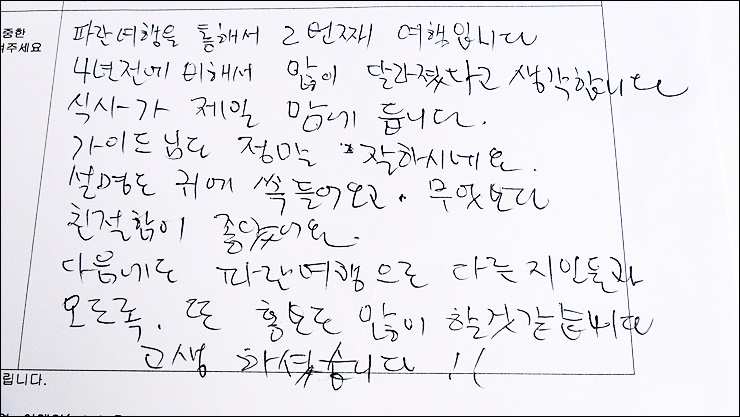 중한
려주세요
파란여행을 통해서 2번째 여행입니다
4년전에 비해서 많이 달라졌다고 생각합니다
식사가 제일 맘에 듭니다.
가이드님도 정말 잘하시네요.
설명도 귀에 쏙들어오고. 무엇보다
친절함이 좋았어요.
다음에도 파란여행으로 다른지인들과
오도록. 또 홍보도 많이 할것같습니다
고생 하셨습니다 !!
립니다.